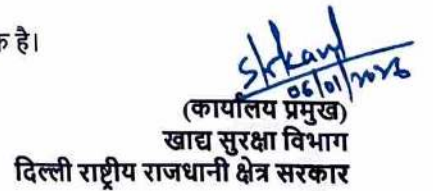 क है।
06/01/2026
(कार्यालय प्रमुख)
खाद्य सुरक्षा विभाग
दिल्ली राष्ट्रीय राजधानी क्षेत्र सरकार